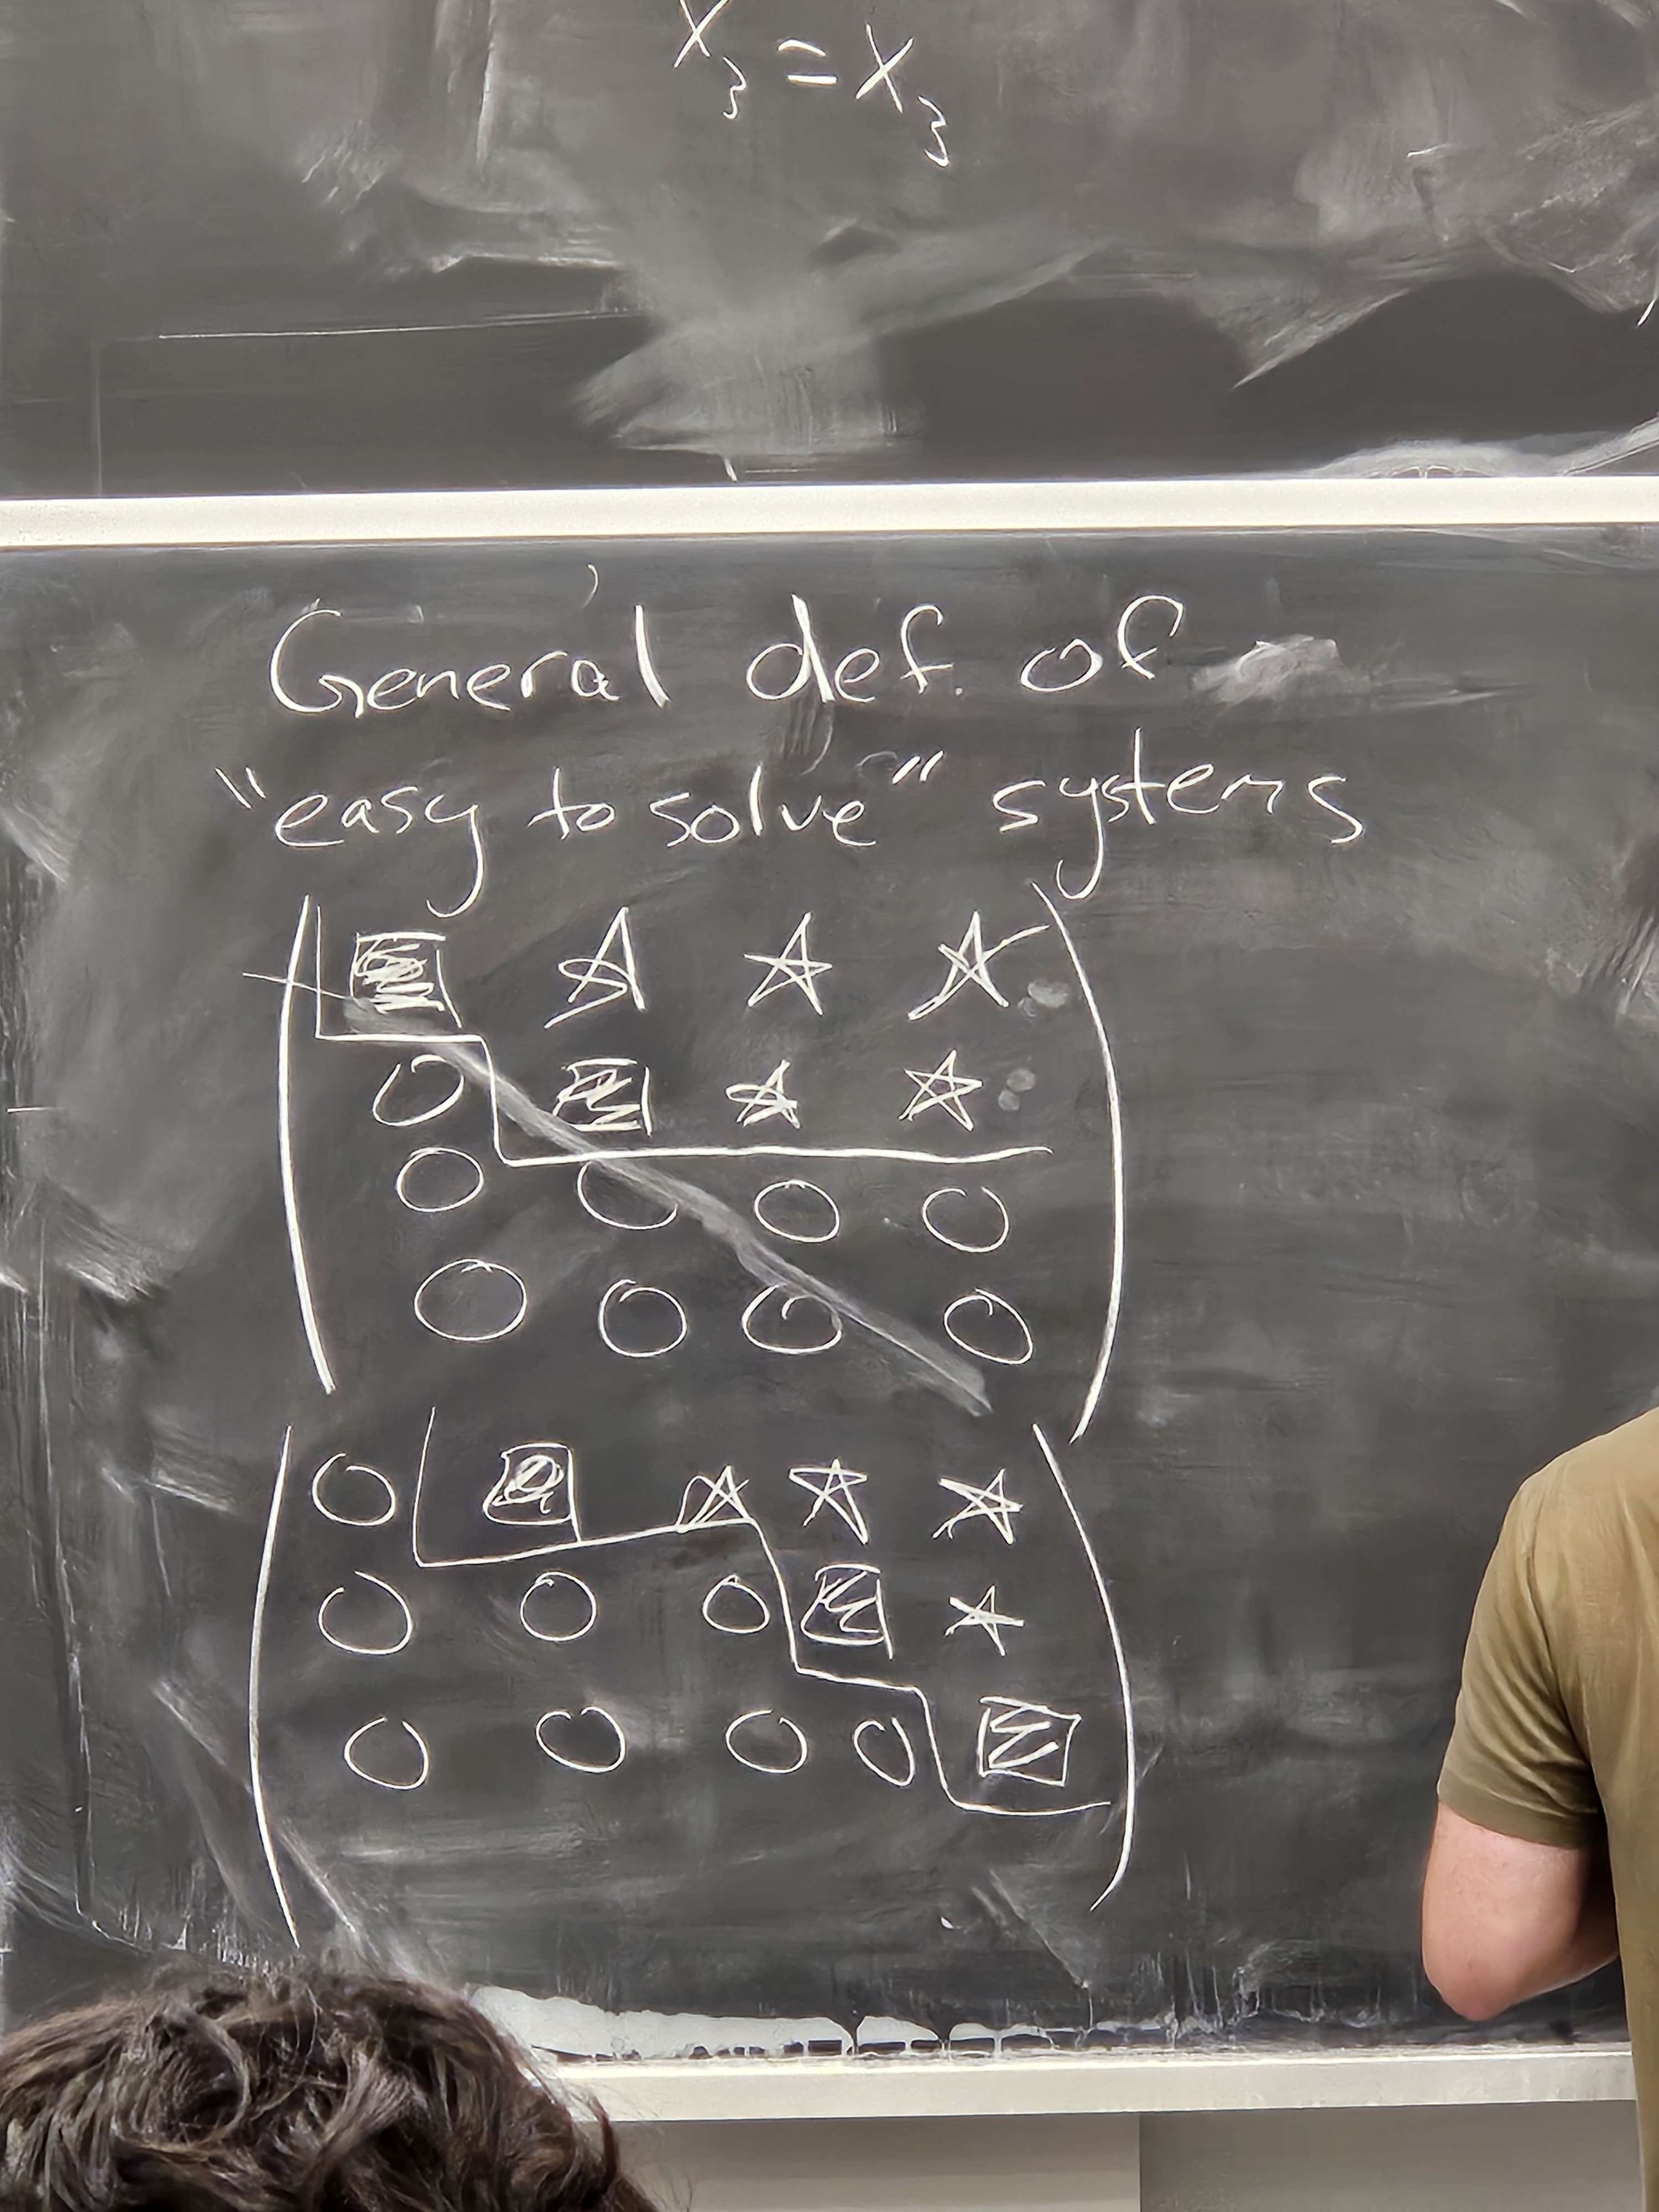 x₃ = x₃
General def. of
"easy to solve" systems
■ ☆ ☆ ☆
0 ■ ☆ ☆
0 0 0 0
0 0 0 0
0 ■ ☆ ☆ ☆
0 0 0 ■ ☆
0 0 0 0 ■